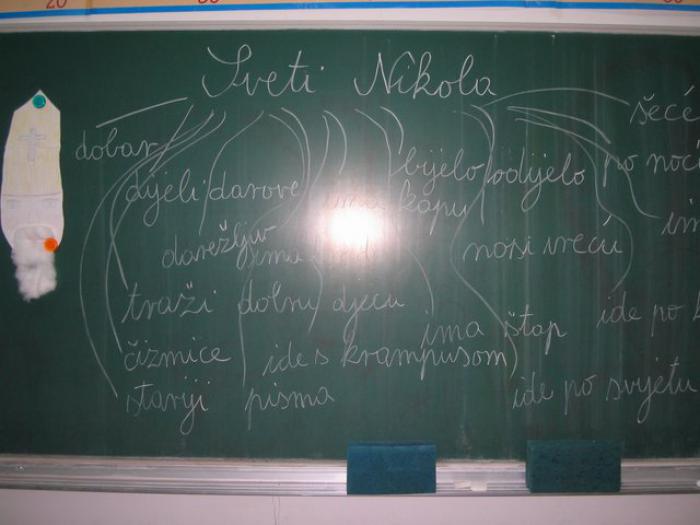 Sveti Nikola
dobar
bijelo odijelo
po
dijeli darove
ima kapu
darežljiv
ima
nosi vreću
traži dobru djecu
ima štap
ide po
čizmice
ide s krampusom
stariji
pisma
ide po svijetu